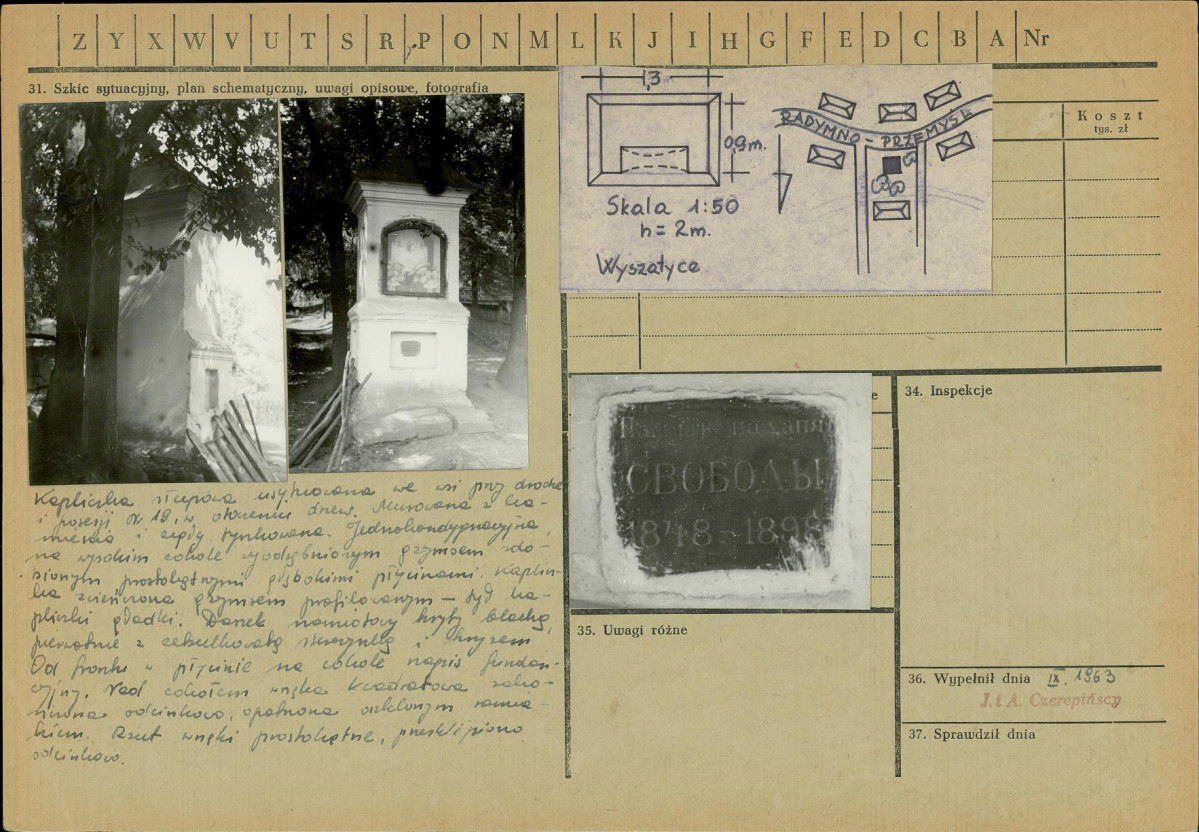 Z Y X W V U T S R P O N M L K J I H G F E D C B A Nr
31. Szkic sytuacyjny, plan schematyczny, uwagi opisowe, fotografia
1,3
0,9 m.
Skala 1:50
h = 2 m.
Wyszatyce
RADYMNO - PRZEMYŚL
Koszt
tys. zł
Kapliczka słupowa usytuowana we wsi przy drodze
i posesji nr 19, w otoczeniu drzew. Murowana z ka-
mienia i cegły tynkowana. Jednokondygnacyjna,
na wysokim cokole wyodrębnionym gzymsem zdo-
bionym prostokątnymi głębokimi płycinami. Kaplicz-
ka zwieńczona gzymsem profilowanym – tył ka-
pliczki gładki. Daszek namiotowy kryty blachą,
z cebulkowatą i krzyżem.
Od frontu w płycinie na cokole napis fundac-
cyjny. Nad cokołem wnęka kwadratowa zamk-
nięta odcinkowo, opatrzona oszklonym
Rzut wnęki prostokątny, przesklepiono
odcinkowo.
СВОБОДЫ
1848-1898
e
34. Inspekcje
35. Uwagi różne
36. Wypełnił dnia IX. 1963
J. i A. Czerepińscy
37. Sprawdził dnia